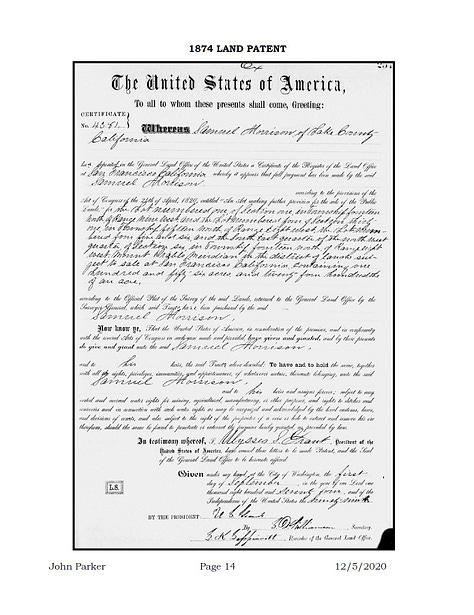 1874 LAND PATENT
The United States of America,
To all to whom these presents shall come, Greeting:
CERTIFICATE
No. 4361.
Whereas Samuel Morrison of Lake County
California
deposited in the General Land Office of the United States a Certificate of the Register of the Land Office
at San Francisco California whereby it appears that full payment has been made by the said
Samuel Morrison
according to the provisions of the
Act of Congress of the 24th of April, 1820, entitled "An Act making further provision for the sale of the Public
Lands," for the Lot numbered one of Section one in Township fourteen
North of Range nine West and the Lot numbered four of Section thirty
one in Township fifteen North of Range eight West the Lot num-
bered four of Section six, and the South East quarter of the North West
quarter of Section six in Township fourteen North of Range eight
West, Mount Diablo Meridian in the district of lands sub-
ject to sale at San Francisco California, Containing one
hundred and fifty six acres and twenty four hundredths
of an acre,
according to the Official Plat of the Survey of the said Lands, returned to the General Land Office by the
Surveyor General, which said Tract has been purchased by the said
Samuel Morrison,
Now know ye, That the United States of America, in consideration of the premises, and in conformity
with the several Acts of Congress in such case made and provided, have given and granted, and by these presents
do give and grant unto the said Samuel Morrison,
and to his heirs, the said Tract above described: To have and to hold the same, together
with all the rights, privileges, immunities, and appurtenances, of whatsoever nature, thereunto belonging, unto the said
Samuel Morrison,
and to his heirs and assigns forever, subject to any
vested and accrued water rights for mining, agricultural, manufacturing, or other purposes, and rights to ditches and
reservoirs used in connection with such water rights as may be recognized and acknowledged by the local customs, laws,
and decisions of courts, and also subject to the right of the proprietor of a vein or lode to extract and remove his ore
therefrom, should the same be found to penetrate or intersect the premises hereby granted, as provided by law.
In testimony whereof, I, Ulysses S. Grant, President of the
United States of America, have caused these letters to be made Patent, and the Seal
of the General Land Office to be hereunto affixed.
Given under my hand, at the City of Washington, the first
day of September, in the year of our Lord one
thousand eight hundred and seventy four, and of the
Independence of the United States the ninety ninth.
L.S.
BY THE PRESIDENT: U. S. Grant
By Secretary.
Recorder of the General Land Office.
John Parker Page 14 12/5/2020